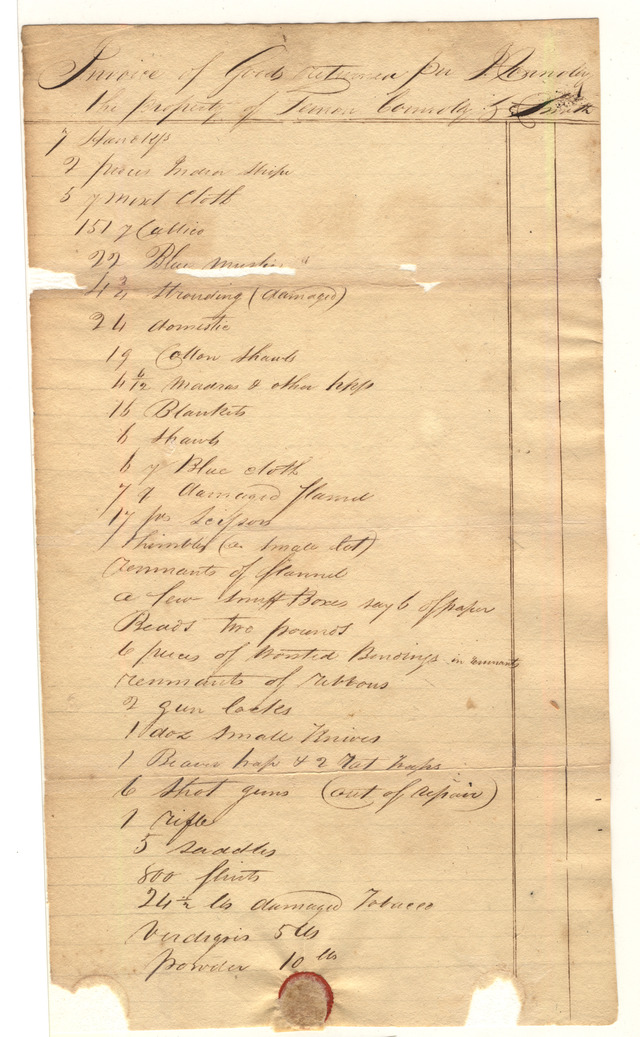 Invoice of Goods returned per J Connolly
the property of Connolly & Smith
7 Handkfs
2 pieces Indian Stripe
5 y mixt Cloth
151 y Callico
22 Blue muslin "
4 3/4 Strouding (damaged)
24 domestic
19 Cotton Shawls
4 6/12 Madras & other hkfs
16 Blankets
6 Shawls
6 y Blue cloth
7 y damaged flannel
17 prs Scissors
Thimbles (a small lot)
remnants of flannel
a few Snuff Boxes say 6 of paper
Beads two pounds
6 pieces of Worsted Bindings in remnants
remnants of ribbons
2 gun locks
1 doz small Knives
1 Beaver trap & 2 Rat traps
6 Shot guns (out of repair)
1 rifle
5 saddles
800 flints
24 1/2 lbs damaged Tobacco
Verdigris 5 lbs
powder 10 lbs